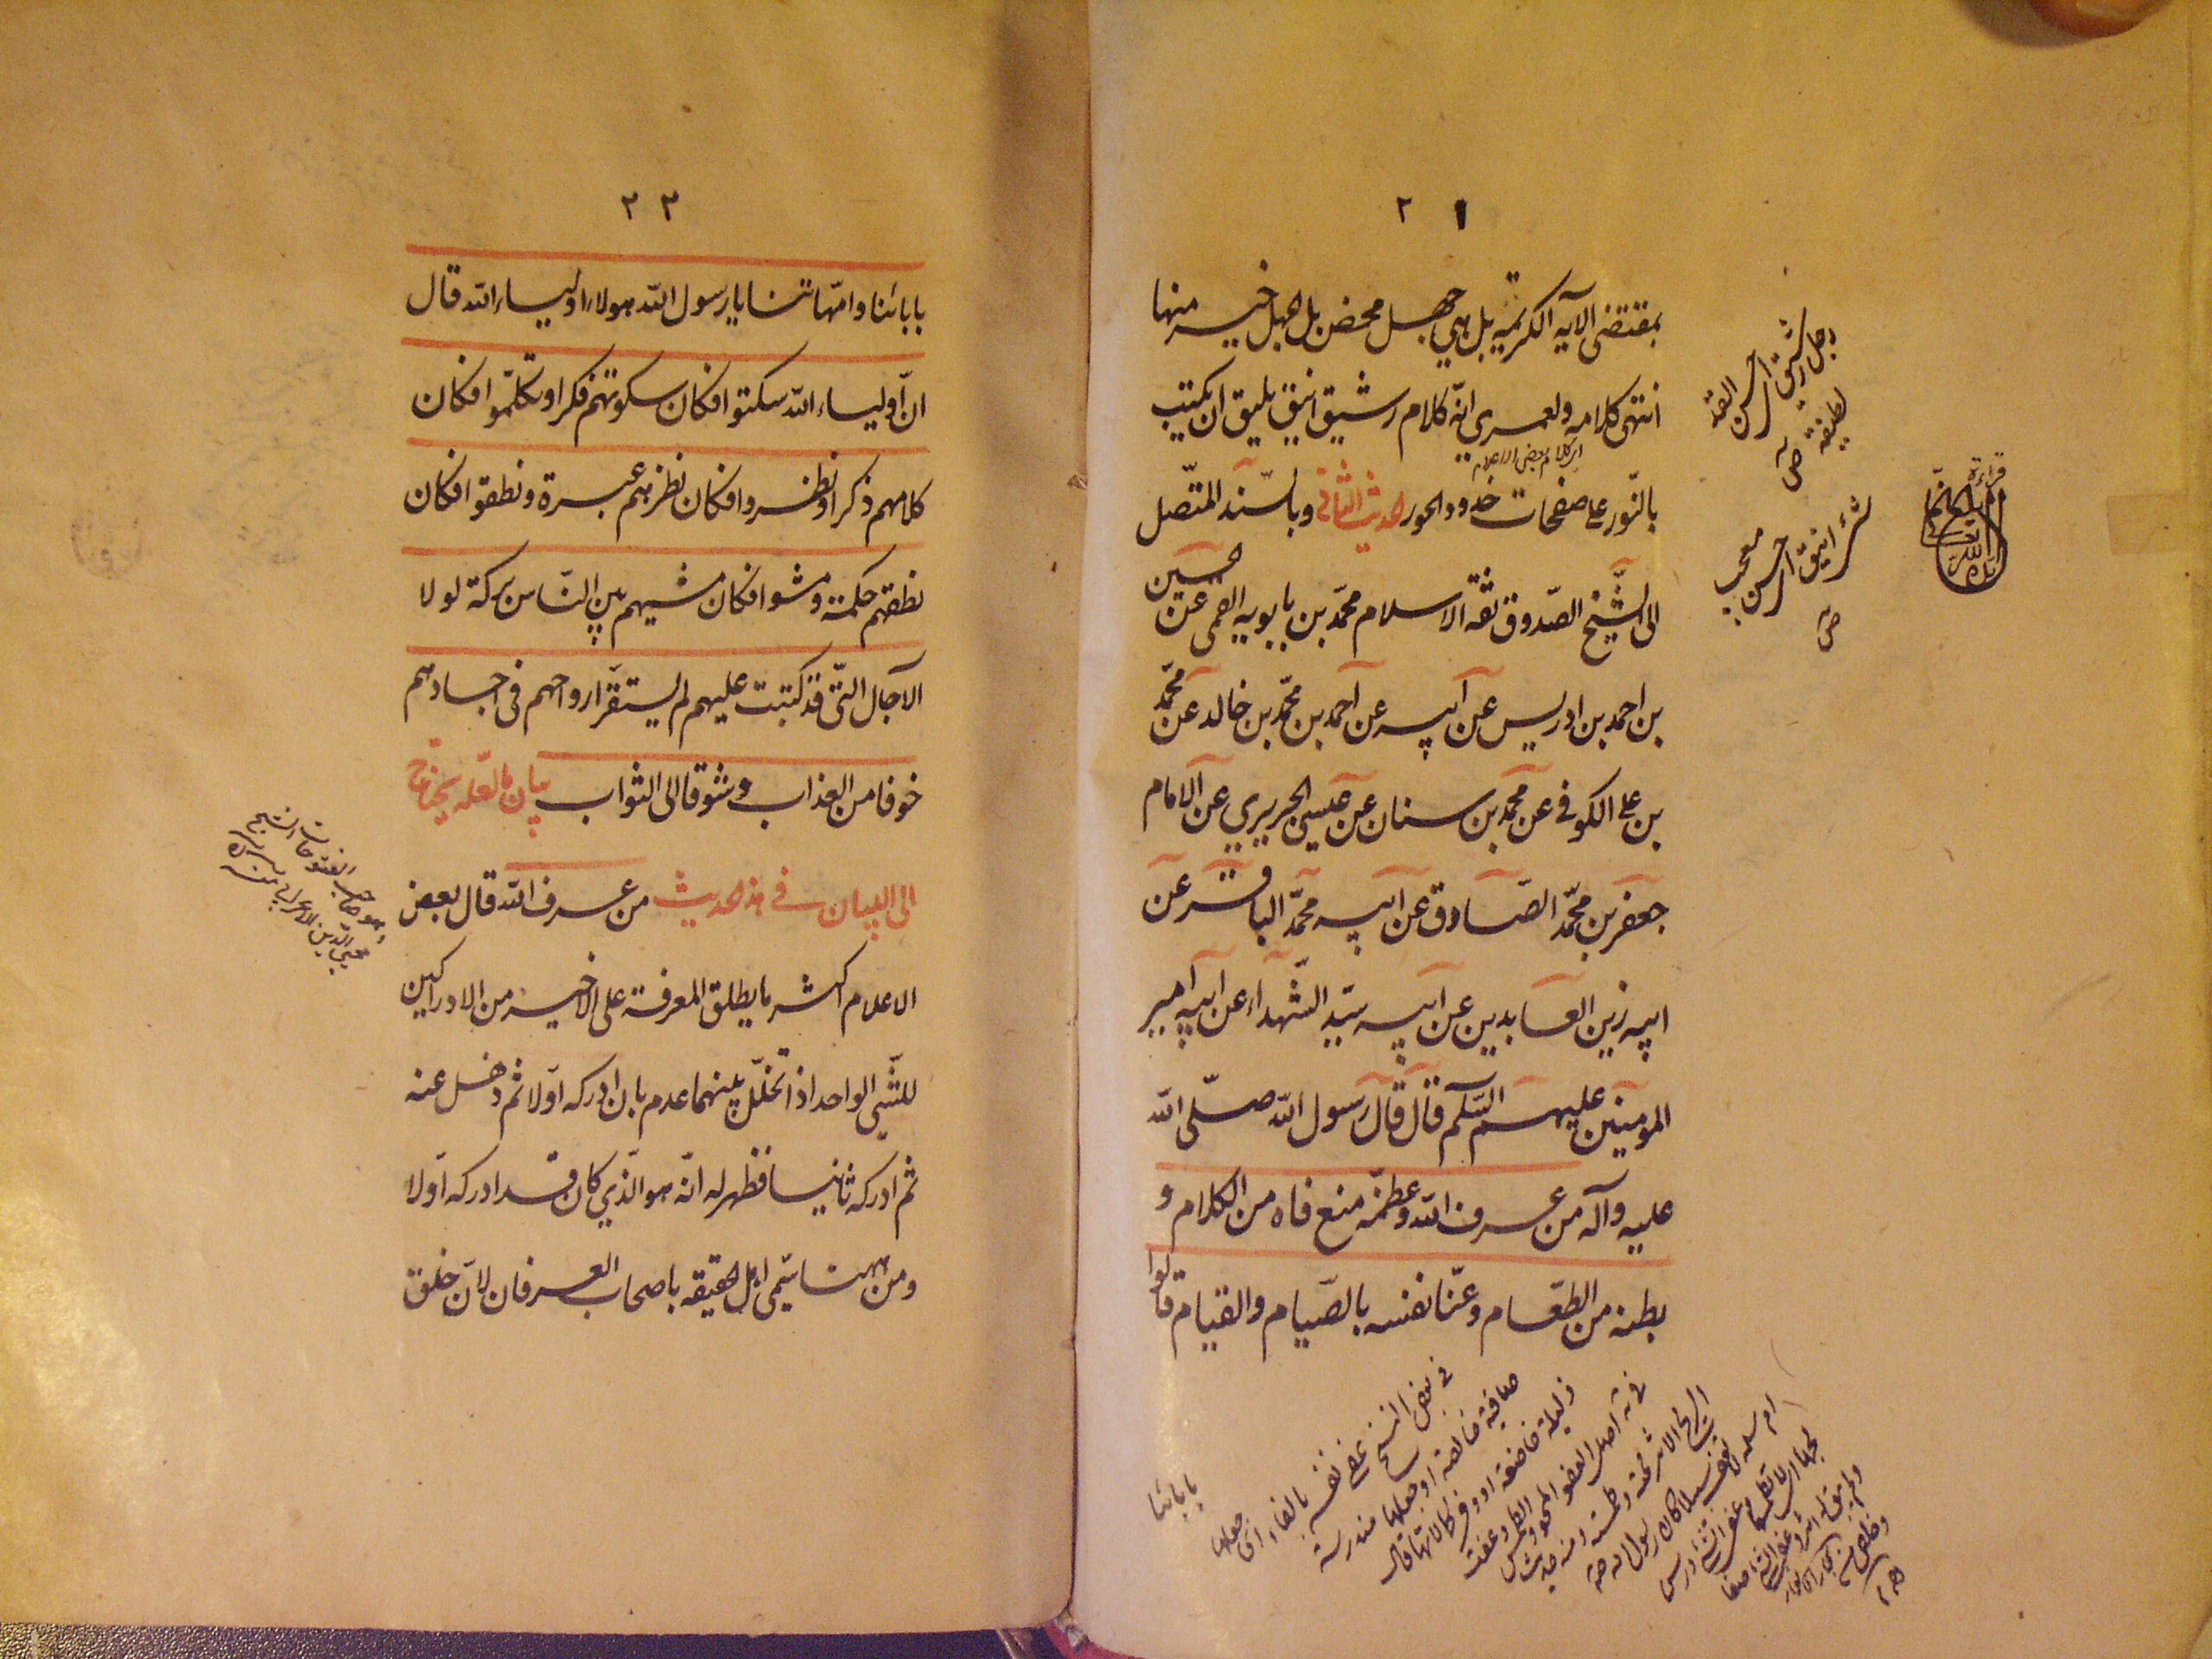 ٢١
بمقتضى الآيه الكريمه بل هي جهل محض بل الجهل خير منها
انتهى كلامه ولعمري انّه كلام رشيق انيق يليق ان يكتب
اى كلام بعض الاعلام
بالنّور على صفحات خدود الحور الحديث الثانى وبالسّند المتّصل
الى الشّيخ الصّدوق ثقه الاسلام محمّد بن بابويه القمى عن الحسين
بن احمد بن ادريس عن ابيه عن احمد بن محمّد بن خالد عن محمّد
بن على الكوفي عن محمّد بن سنان عن عيسى الجريري عن الامام
جعفر بن محمّد الصّادق عن ابيه محمّد الباقر عن
ابيه زين العابدين عن ابيه سيّد الشّهداء عن ابيه امير
المومنين عليهم السّلم قال قال رسول الله صلّى الله
عليه وآله من عرف الله وعظّمه منع فاه من الكلام و
بطنه من الطّعام وعنّا نفسه بالصّيام والقيام قالوا
بابائنا
رجل رشيق اى حسن القد
لطيفه ص
شئ انيق اى حسن معجب
ص
فى بعض النسخ عفى نفسه بالفاء اى جعلها
صافية خالصة او جعلها مندرسة
٢٣
بابائنا وامّهاتنا يا رسول الله هولاء اولياء الله قال
انّ اولياء الله سكتوا فكان سكوتهم فكرا وتكلّموا فكان
كلامهم ذكرا ونظروا فكان نظرهم عبرة ونطقوا فكان
نطقهم حكمة ومشوا فكان مشيهم بين النّاس بركة لولا
الآجال الّتى قد كتبت عليهم لم يستقرّ ارواحهم فى اجسادهم
خوفا من العذاب وشوقا الى الثواب بيان ما لعلّه يحتاج
الى البيان في هذا الحديث من عرف الله قال بعض
الاعلام اكثر ما يطلق المعرفة على الاخير من الادراكين
للشّئ الواحد اذا تخلّل بينهما عدم بان ادركه اوّلا ثم ذهل عنه
ثم ادركه ثانيا فظهر له انّه هو الّذي كان قد ادركه اوّلا
ومن ههنا سمّى اهل الحقيقه باصحاب العرفان لانّ خلق
وهو صاحب الفتوحات الشيخ
محيى الدين الاعرابى